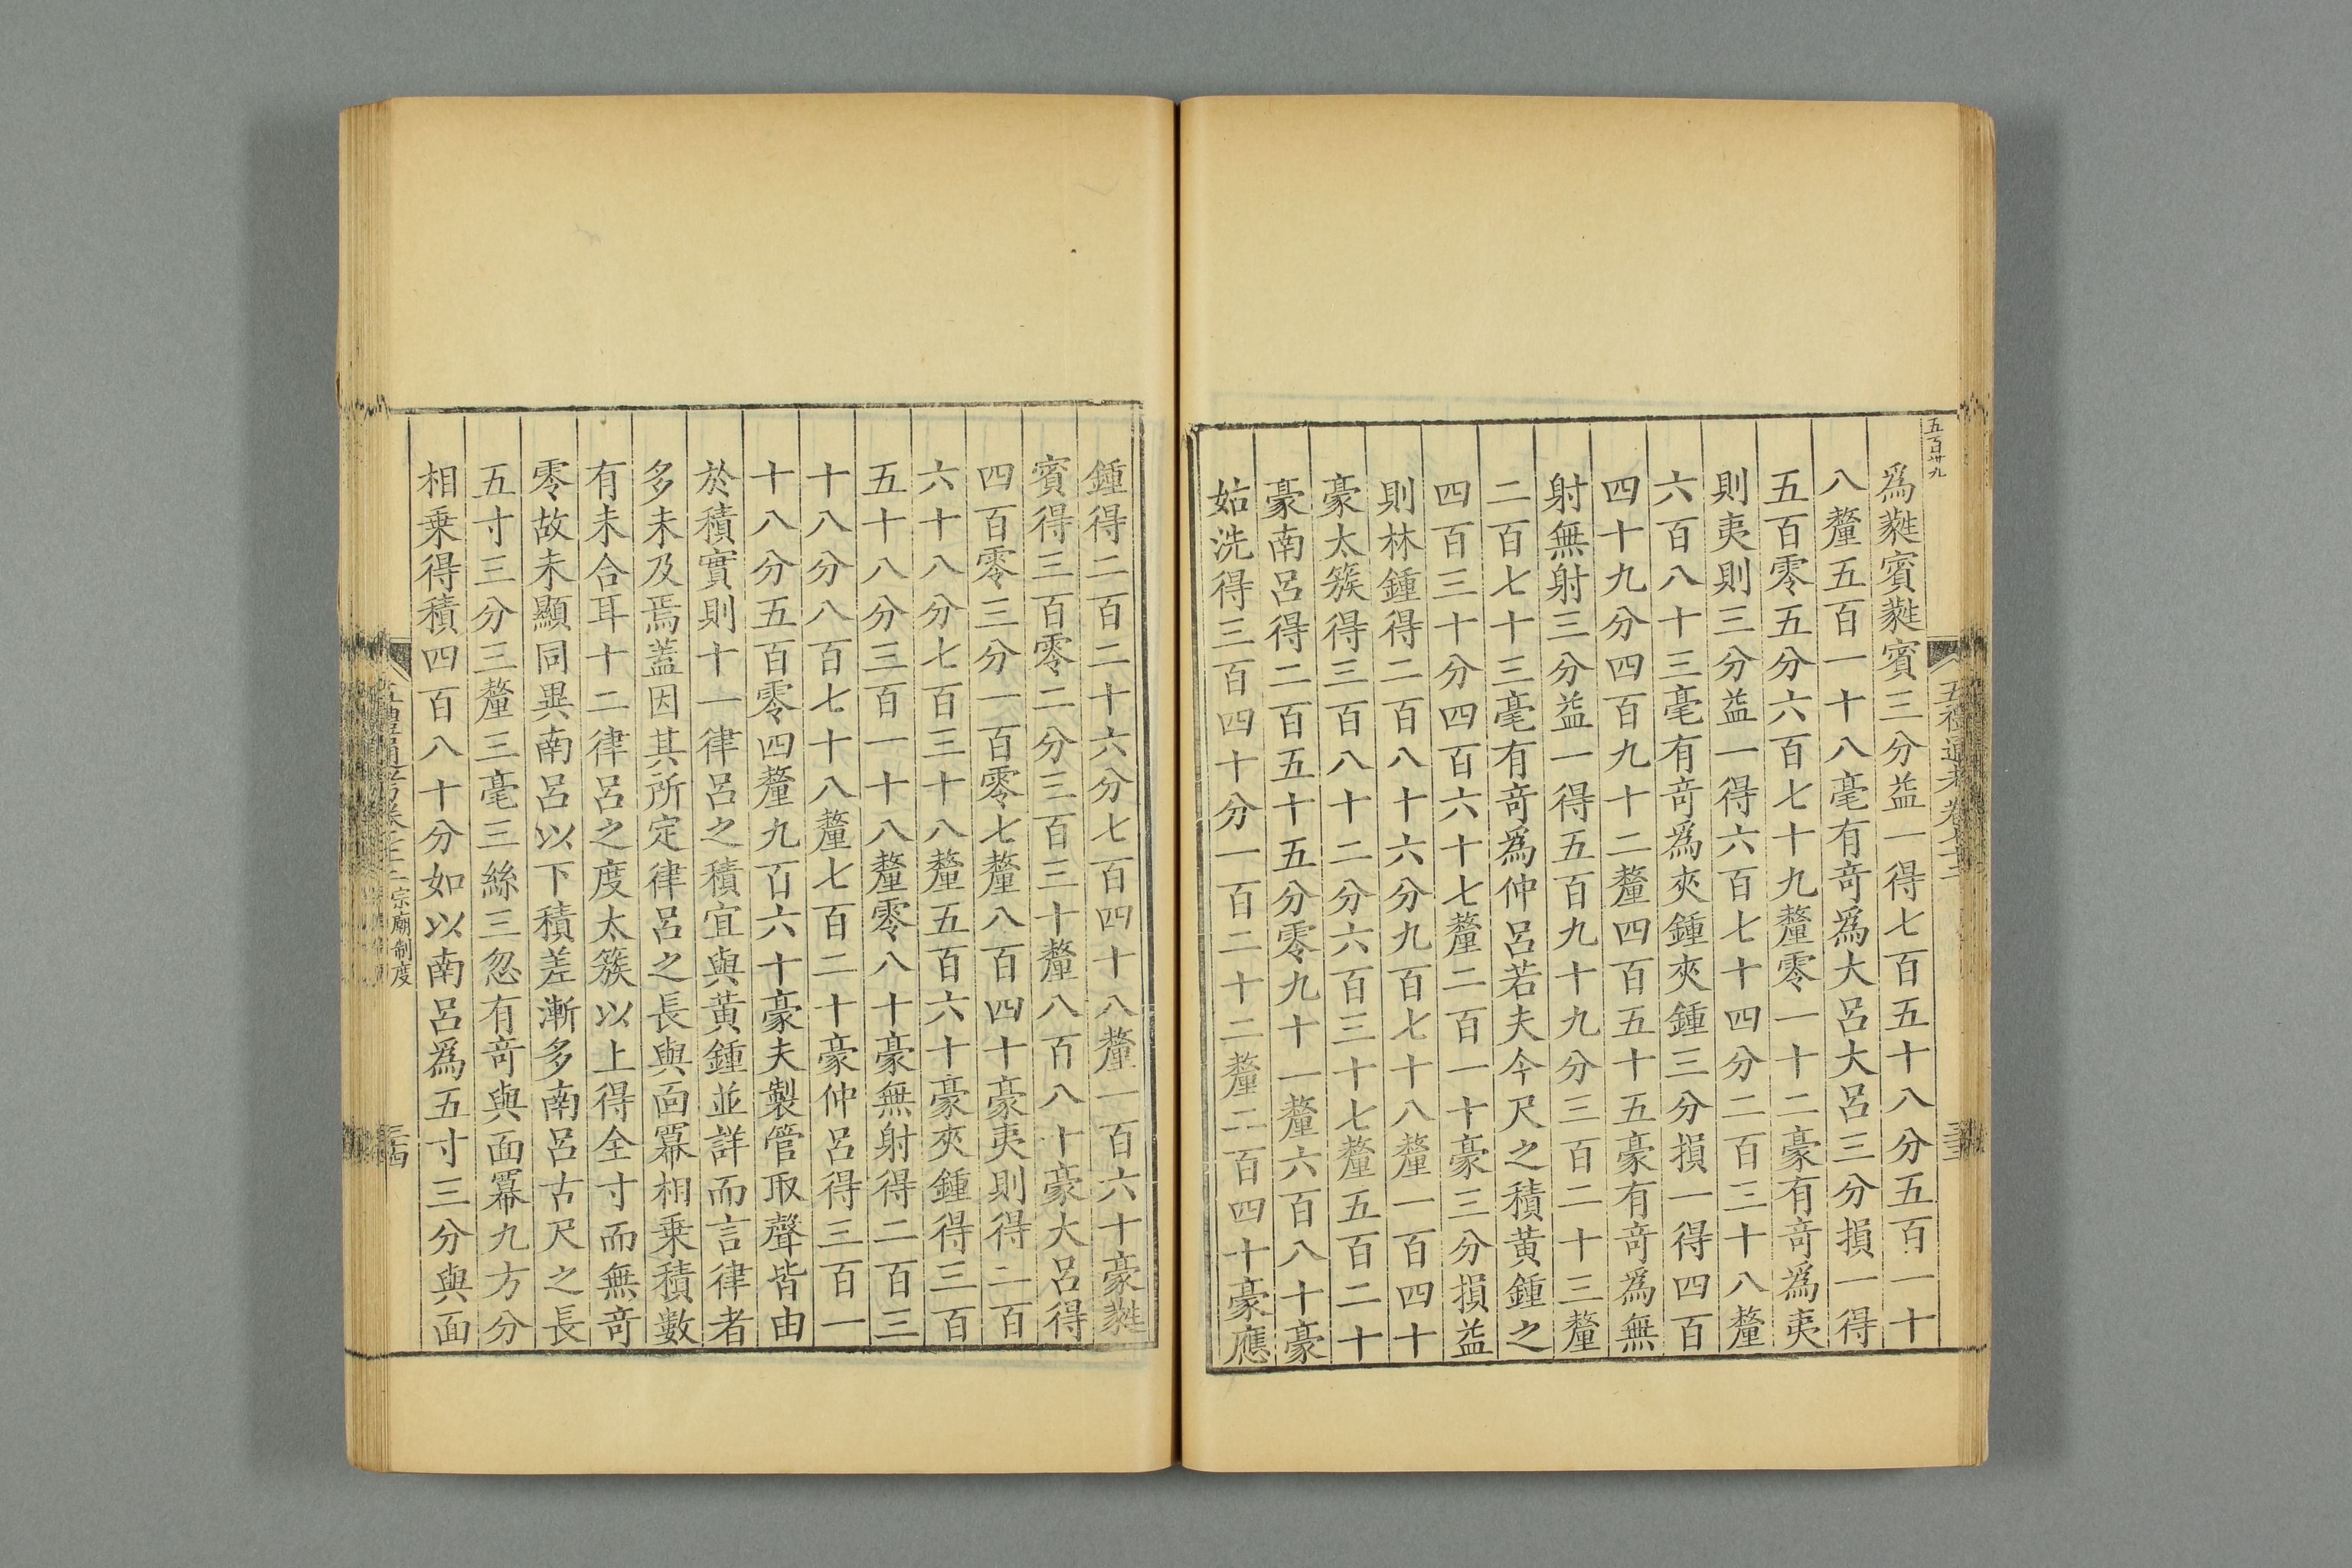 五百卅九
五禮通考卷七十三
三十三
爲蕤賓蕤賓三分益一得七百五十八分五百一十
八釐五百一十八毫有奇爲大呂大呂三分損一得
五百零五分六百七十九釐零一十二豪有奇爲夷
則夷則三分益一得六百七十四分二百三十八釐
六百八十三毫有奇爲夾鍾夾鍾三分損一得四百
四十九分四百九十二釐四百五十五豪有奇爲無
射無射三分益一得五百九十九分三百二十三釐
二百七十三毫有奇爲仲呂若夫今尺之積黃鍾之
四百三十分四百六十七釐二百一十豪三分損益
則林鍾得二百八十六分九百七十八釐一百四十
豪太簇得三百八十二分六百三十七釐五百二十
豪南呂得二百五十五分零九十一釐六百八十豪
姑洗得三百四十分一百二十二釐二百四十豪應
鍾得二百二十六分七百四十八釐一百六十豪蕤
賓得三百零二分三百三十釐八百八十豪大呂得
四百零三分一百零七釐八百四十豪夷則得二百
六十八分七百三十八釐五百六十豪夾鍾得三百
五十八分三百一十八釐零八十豪無射得二百三
十八分八百七十八釐七百二十豪仲呂得三百一
十八分五百零四釐九百六十豪夫製管取聲皆由
於積實則十一律呂之積宜與黃鍾並詳而言律者
多未及焉蓋因其所定律呂之長與面冪相乘積數
有未合耳十二律呂之度太簇以上得全寸而無奇
零故未顯同異南呂以下積差漸多南呂古尺之長
五寸三分三釐三毫三絲三忽有奇與面冪九方分
相乘得積四百八十分如以南呂爲五寸三分與面
宗廟制度
三十四